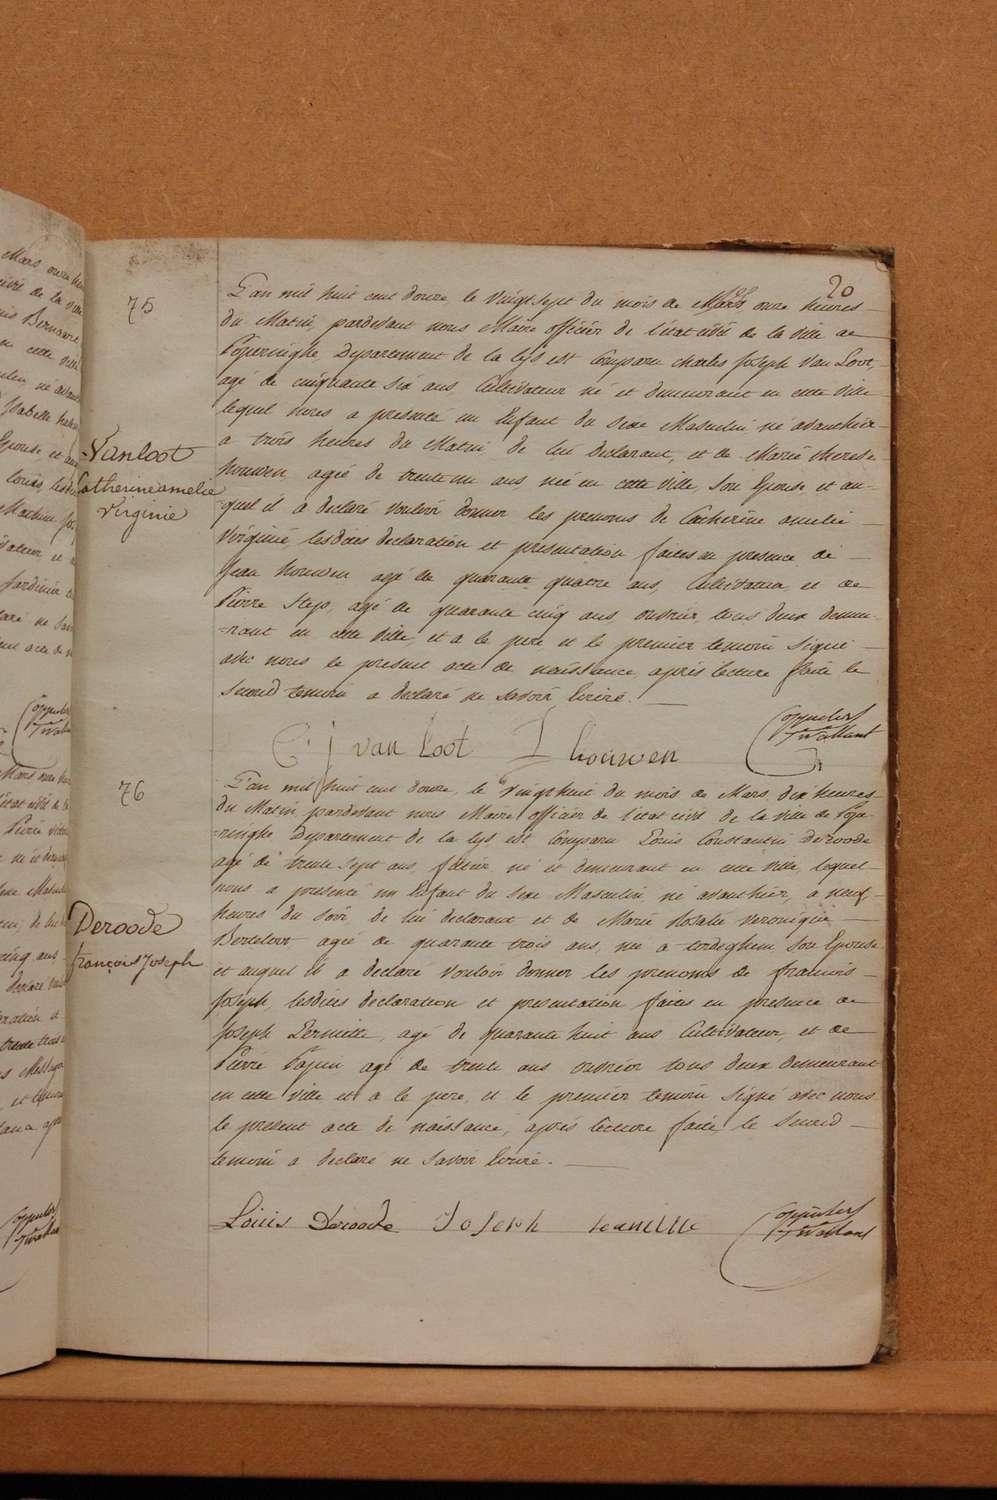 20
75
L'an mil huit cent douze le vingt sept du mois de Mars onze heures
du Matin, pardevant nous Maire officier de l'état civil de la ville de
Poperinghe, Departement de la Lys est Comparu Charles Joseph Van Loot,
agé de cinquante six ans, Cultivateur né et demeurant en cette ville
lequel nous a presenté un Enfant du sexe Masculin né avanthier
a trois heures du Matin, de lui declarant, et de Marie therese
houwen, agée de trente un ans née en cette ville, son Epouse et au-
-quel il a declaré vouloir donner les prenoms de Catherine amelie
Virginie, lesdites declaration et presentation faites en presence de
Jean houwen agé de quarante quatre ans, Cultivateur, et de
Pierre Step, agé de quarante cinq ans, ouvrier, tous deux demeu-
-rant en cette ville, et a le pere et le premier temoin signé
avec nous le present acte de naissance, après lecture faite le
second temoin a declaré ne savoir Ecrire.
Vanloot
Catherine amelie
Virginie
C j van Loot J houwen
76
L'an mil huit cent douze, le vingt huit du mois de Mars, dix heures
du Matin pardevant nous Maire officier de l'état civil de la ville de Pope-
-ringhe Departement de la Lys est Comparu Louis Constantin Deroode
agé de trente sept ans, né et demeurant en cette ville, lequel
nous a presenté un Enfant du sexe Masculin né avanthier, a neuf
heures du soir de lui declarant et de Marie Rosalie veronique
Berteloot agée de quarante trois ans, née a son Epouse
et auquel il a declaré vouloir donner les prenoms de francois
Joseph, lesdites declaration et presentation faites en presence de
Joseph agé de quarante huit ans Cultivateur, et de
Pierre agé de trente ans ouvrier tous deux demeurant
en cette ville et a le pere, et le premier temoin signé avec nous
le present acte de naissance, après lecture faite le second
temoin a declaré ne savoir Ecrire.
Deroode
françois Joseph
Louis Deroode Joseph